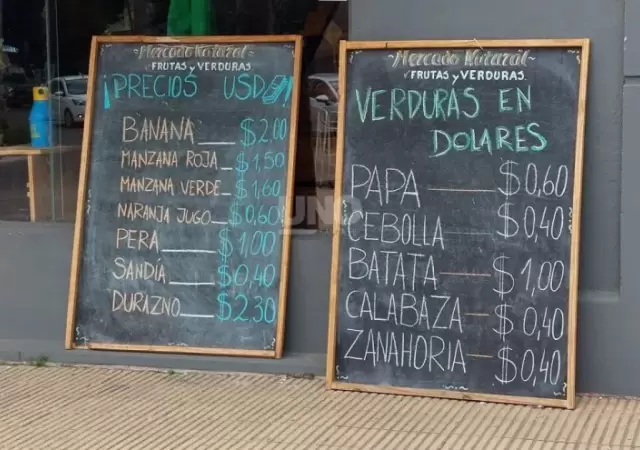 Mercado Natural
FRUTAS y VERDURAS
¡PRECIOS USD!
BANANA $2.00
MANZANA ROJA $1.50
MANZANA VERDE $1.60
NARANJA JUGO $0.60
PERA $1,00
SANDÍA $0.40
DURAZNO $2.30
Mercado Natural
FRUTAS y VERDURAS
VERDURAS EN
DOLARES
PAPA $0,60
CEBOLLA $0,40
BATATA $1,00
CALABAZA $0,40
ZANAHORIA $0,40
UNO